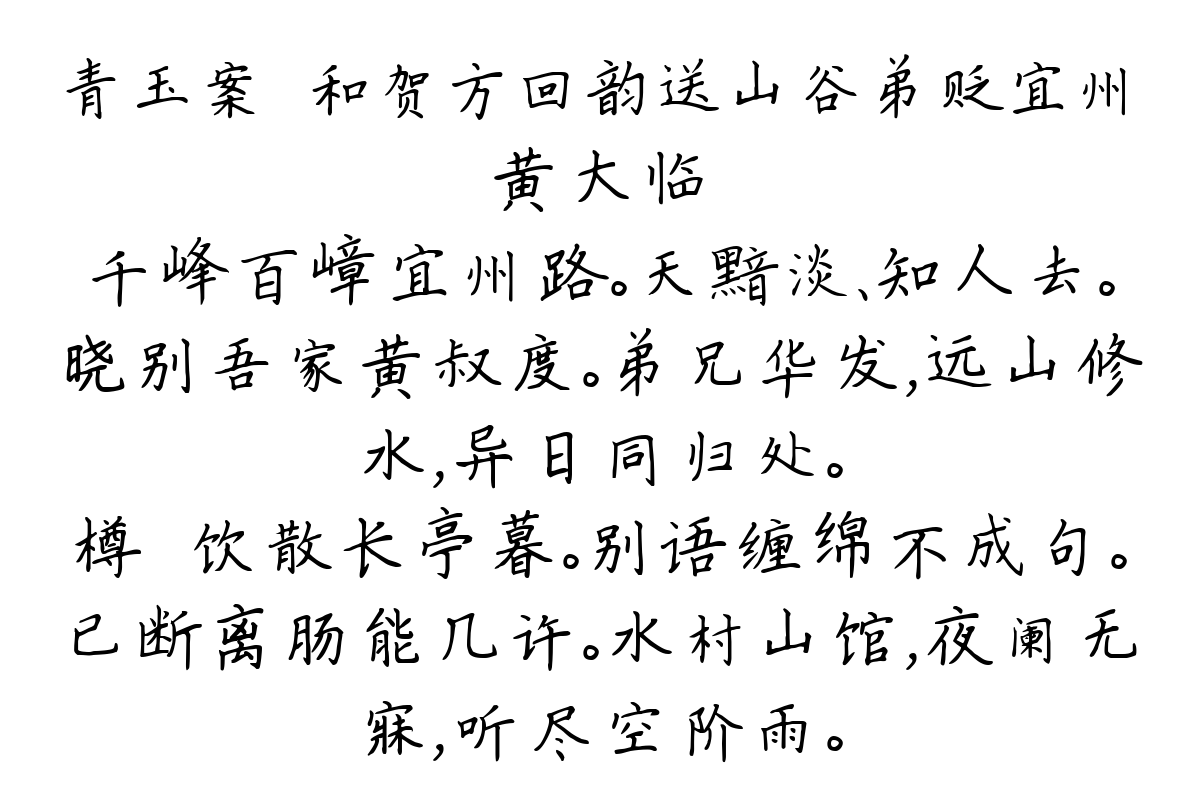 青玉案 和贺方回韵送山谷弟贬宜州
黄大临
千峰百嶂宜州路。天黯淡、知人去。
晓别吾家黄叔度。弟兄华发,远山修
水,异日同归处。
樽 饮散长亭暮。别语缠绵不成句。
已断离肠能几许。水村山馆,夜阑无
寐,听尽空阶雨。